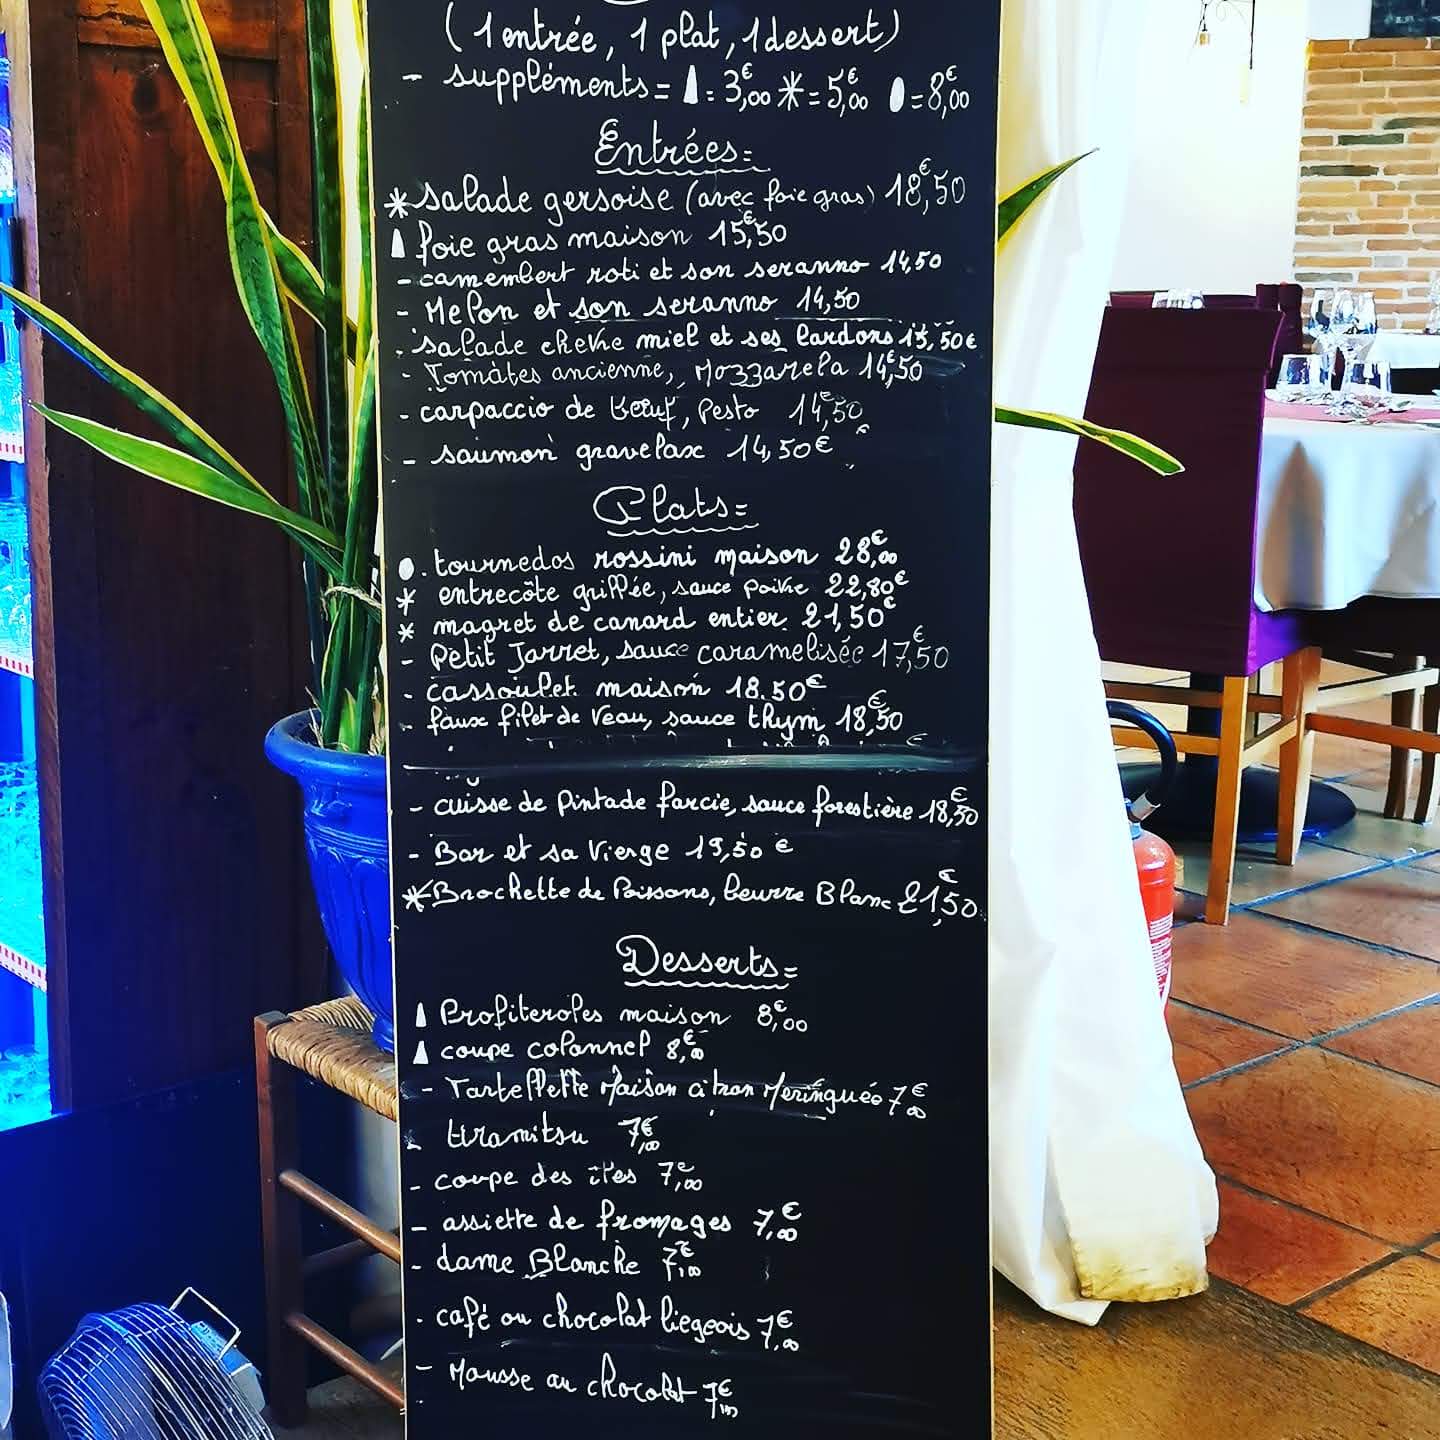 (1 entrée, 1 plat, 1 dessert)
- suppléments = ▲ = 3,00€ * = 5,00€ ● = 8,00€
Entrées =
* salade gersoise (avec foie gras) 18,50€
▲ foie gras maison 15,50€
- camembert roti et son seranno 14,50
- Melon et son seranno 14,50
- salade chèvre miel et ses lardons 15,50€
- Tomates ancienne, Mozzarela 14,50€
- carpaccio de bœuf, Pesto 14,50€
- saumon gravelax 14,50€
Plats =
● - tournedos rossini maison 28,00€
* entrecôte grillée, sauce poivre 22,80€
* magret de canard entier 21,50€
- Petit Jarret, sauce caramelisée 17,50€
- cassoulet maison 18.50€
- faux filet de veau, sauce thym 18,50€
- cuisse de Pintade farcie, sauce forestière 18,50€
- Bar et sa Vierge 19,50€
* Brochette de Poissons, beurre Blanc 21,50€
Desserts =
▲ Profiteroles maison 8,00€
▲ coupe colonnel 8,00€
- Tartellette Maison citron Meringuée 7,00€
- tiramitsu 7,00€
- coupe des îles 7,00€
- assiette de fromages 7,00€
- dame Blanche 7,00€
- café ou chocolat liegeois 7,00€
- Mousse au chocolat 7,00€